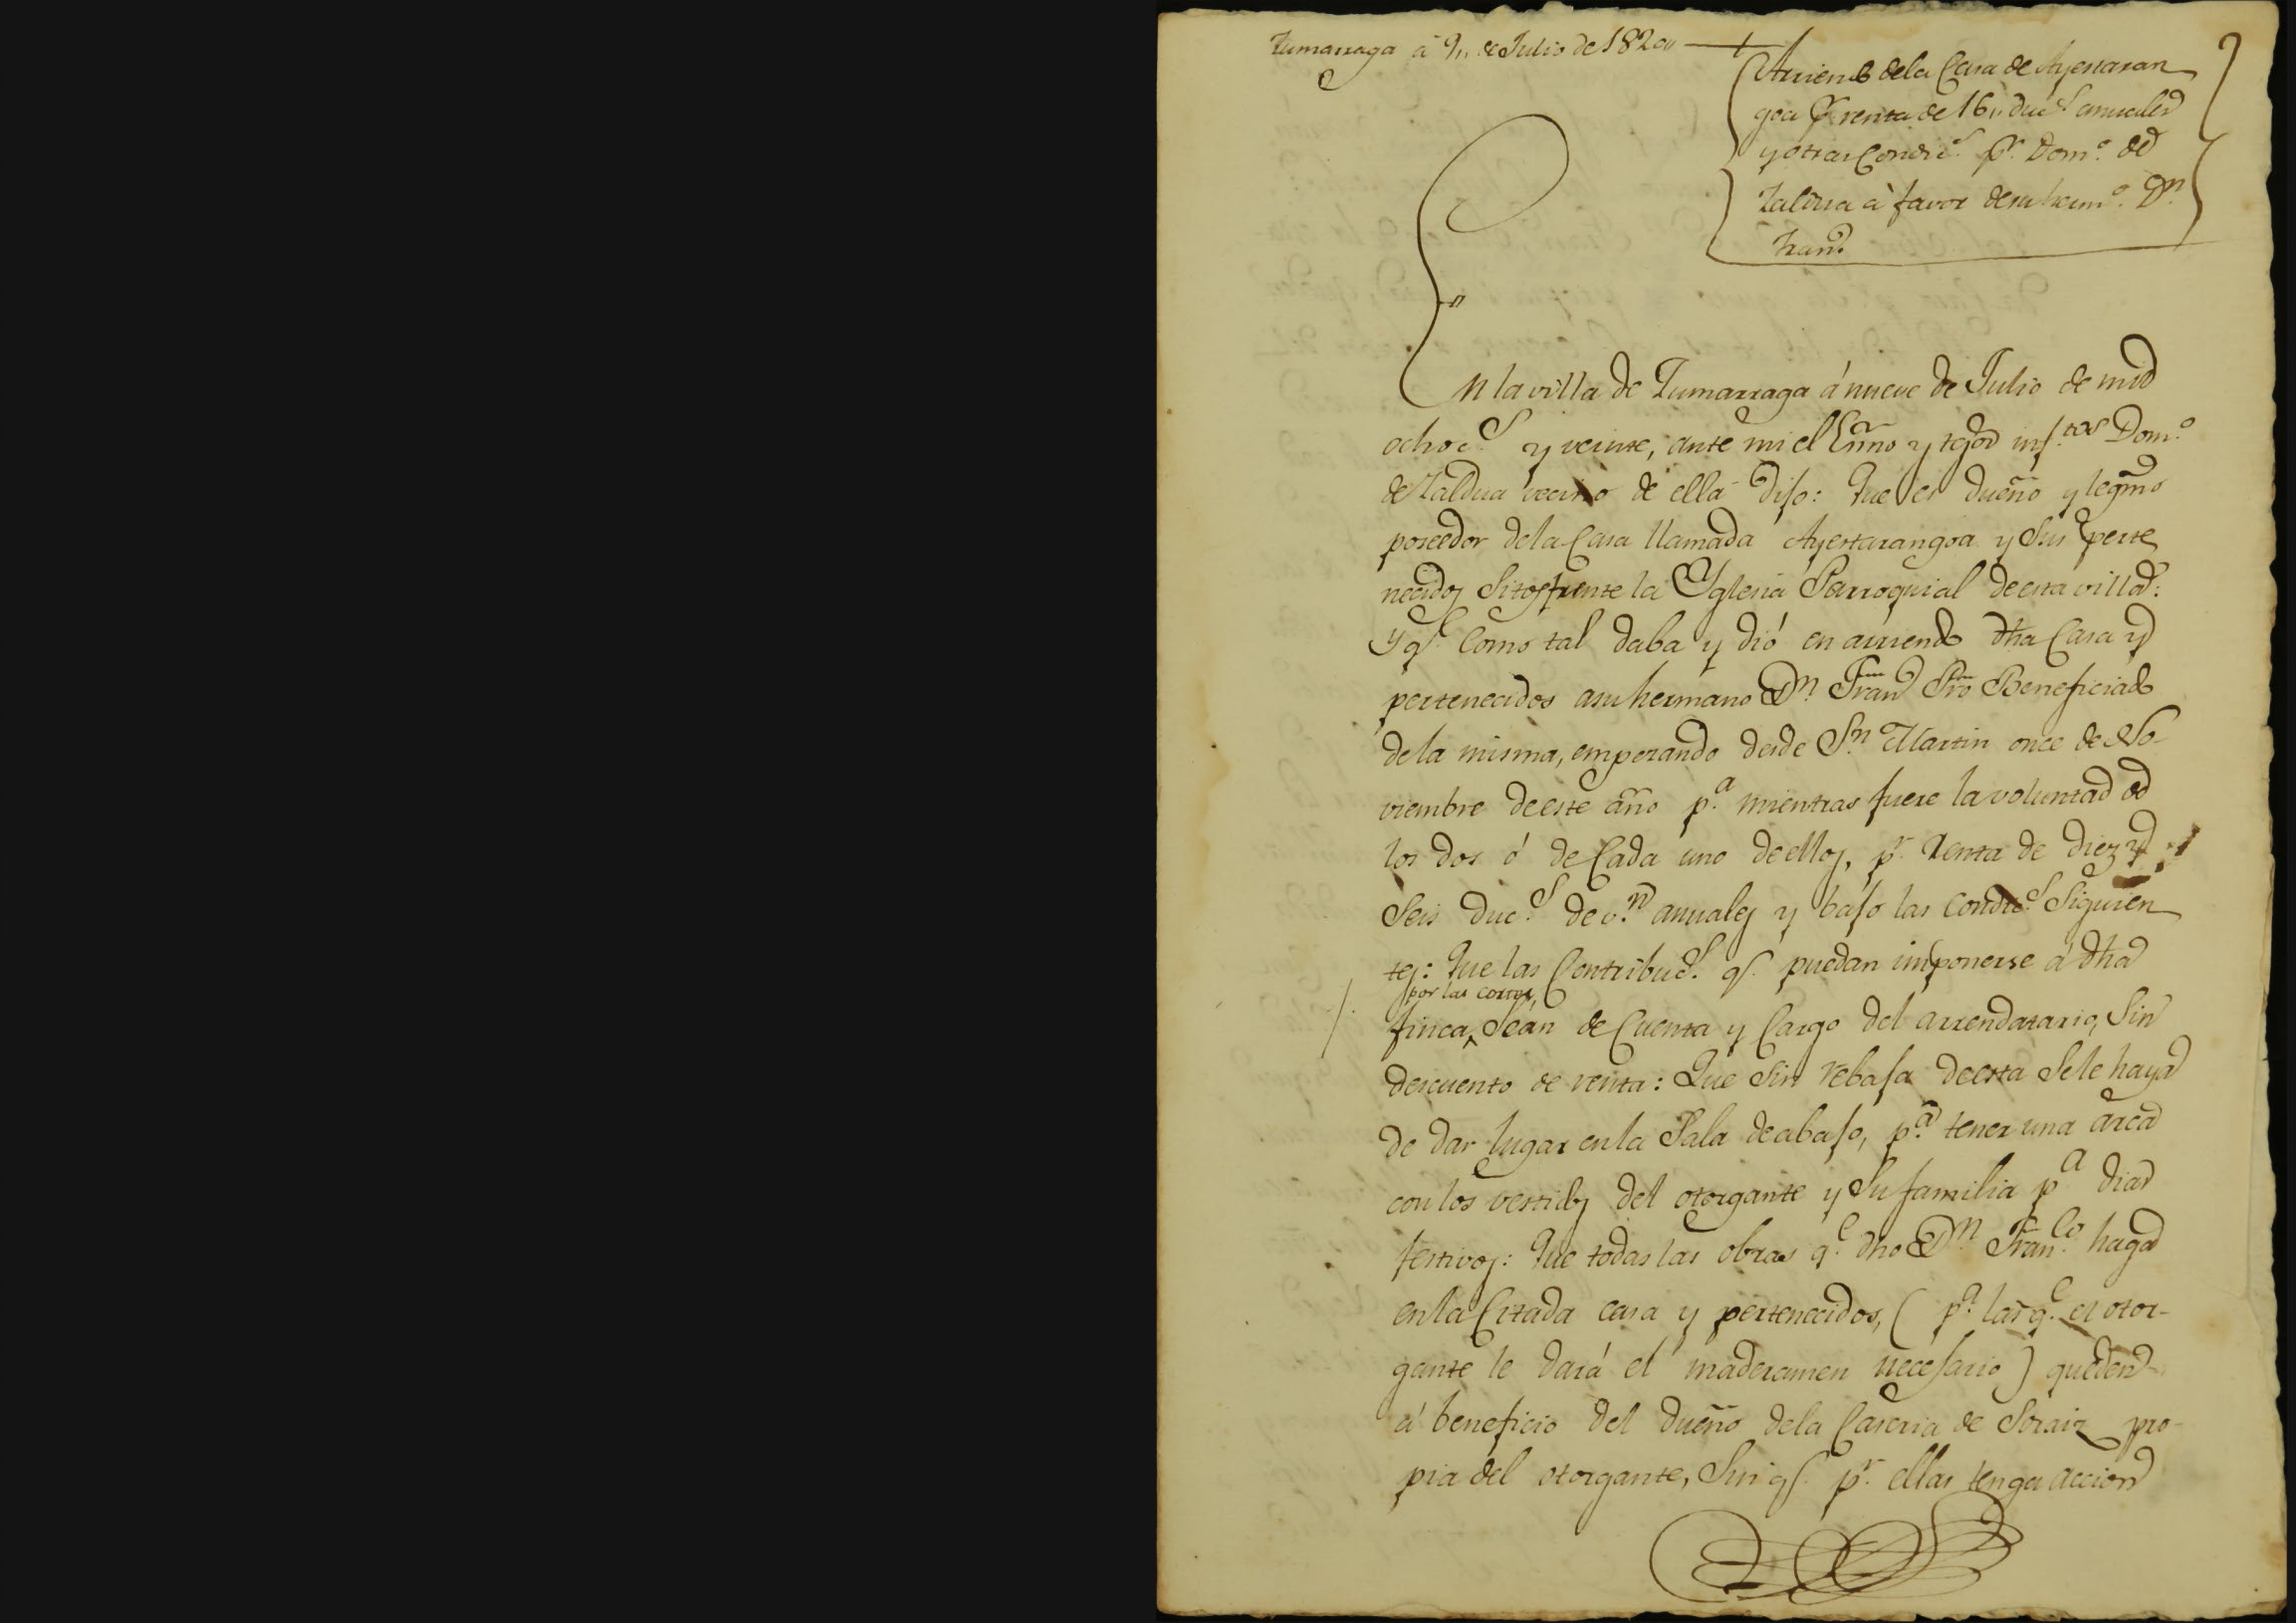 Zumarraga á 9,, de Julio de 1820,,
Arriendo dela Casa de Ayestaran
goa pr. renta de 16,, ducs. anuales
y otras Condics. pr. Domo. de
Zaldua à favor desu hermo. Dn.
Franco.
En la villa de Zumarraga á nueve de Julio de mil
ochocs. y veinte, ante mi el Esno y tgos infrtos Domo.
de Zaldua vecino de ella dijo: Que es dueño y legmo
poseedor dela Casa llamada Ayestarangoa y Sus perte
necidos Sitos frente la Yglesia Parroquial deesta villa:
y qe. Como tal daba y dió en arriendo dha Casa y
pertenecidos asu hermano Dn. Franco Pro Beneficiado
dela misma, empezando desde Sn. Martin once de No-
viembre deeste año pa. mientras fuere la voluntad de
los dos ó de Cada uno deellos, pr. Renta de diez y
Seis ducs. de vn. anuales y bajo las Condics. Siguien
tes: Que las Contribucs. qe. puedan imponerse á dha
por las cortes,
finca, Seán de Cuenta y Cargo del arrendatario, Sin
descuento de renta: Que Sin rebaja deesta Sele haya
de dar lugar enla Sala deabajo, pa. tener una arca
con los vestidos del otorgante y Su familia pa dias
festivos: Que todas las obras qe. dho Dn. Franco. haga
enla Citada casa y pertenecidos, ( pa. las qe. el otor-
gante le dará el maderamen necesario) queden
á beneficio del dueño dela Caseria de Soraiz pro-
pia del otorgante, Sin qe. pr. ellas tenga accion